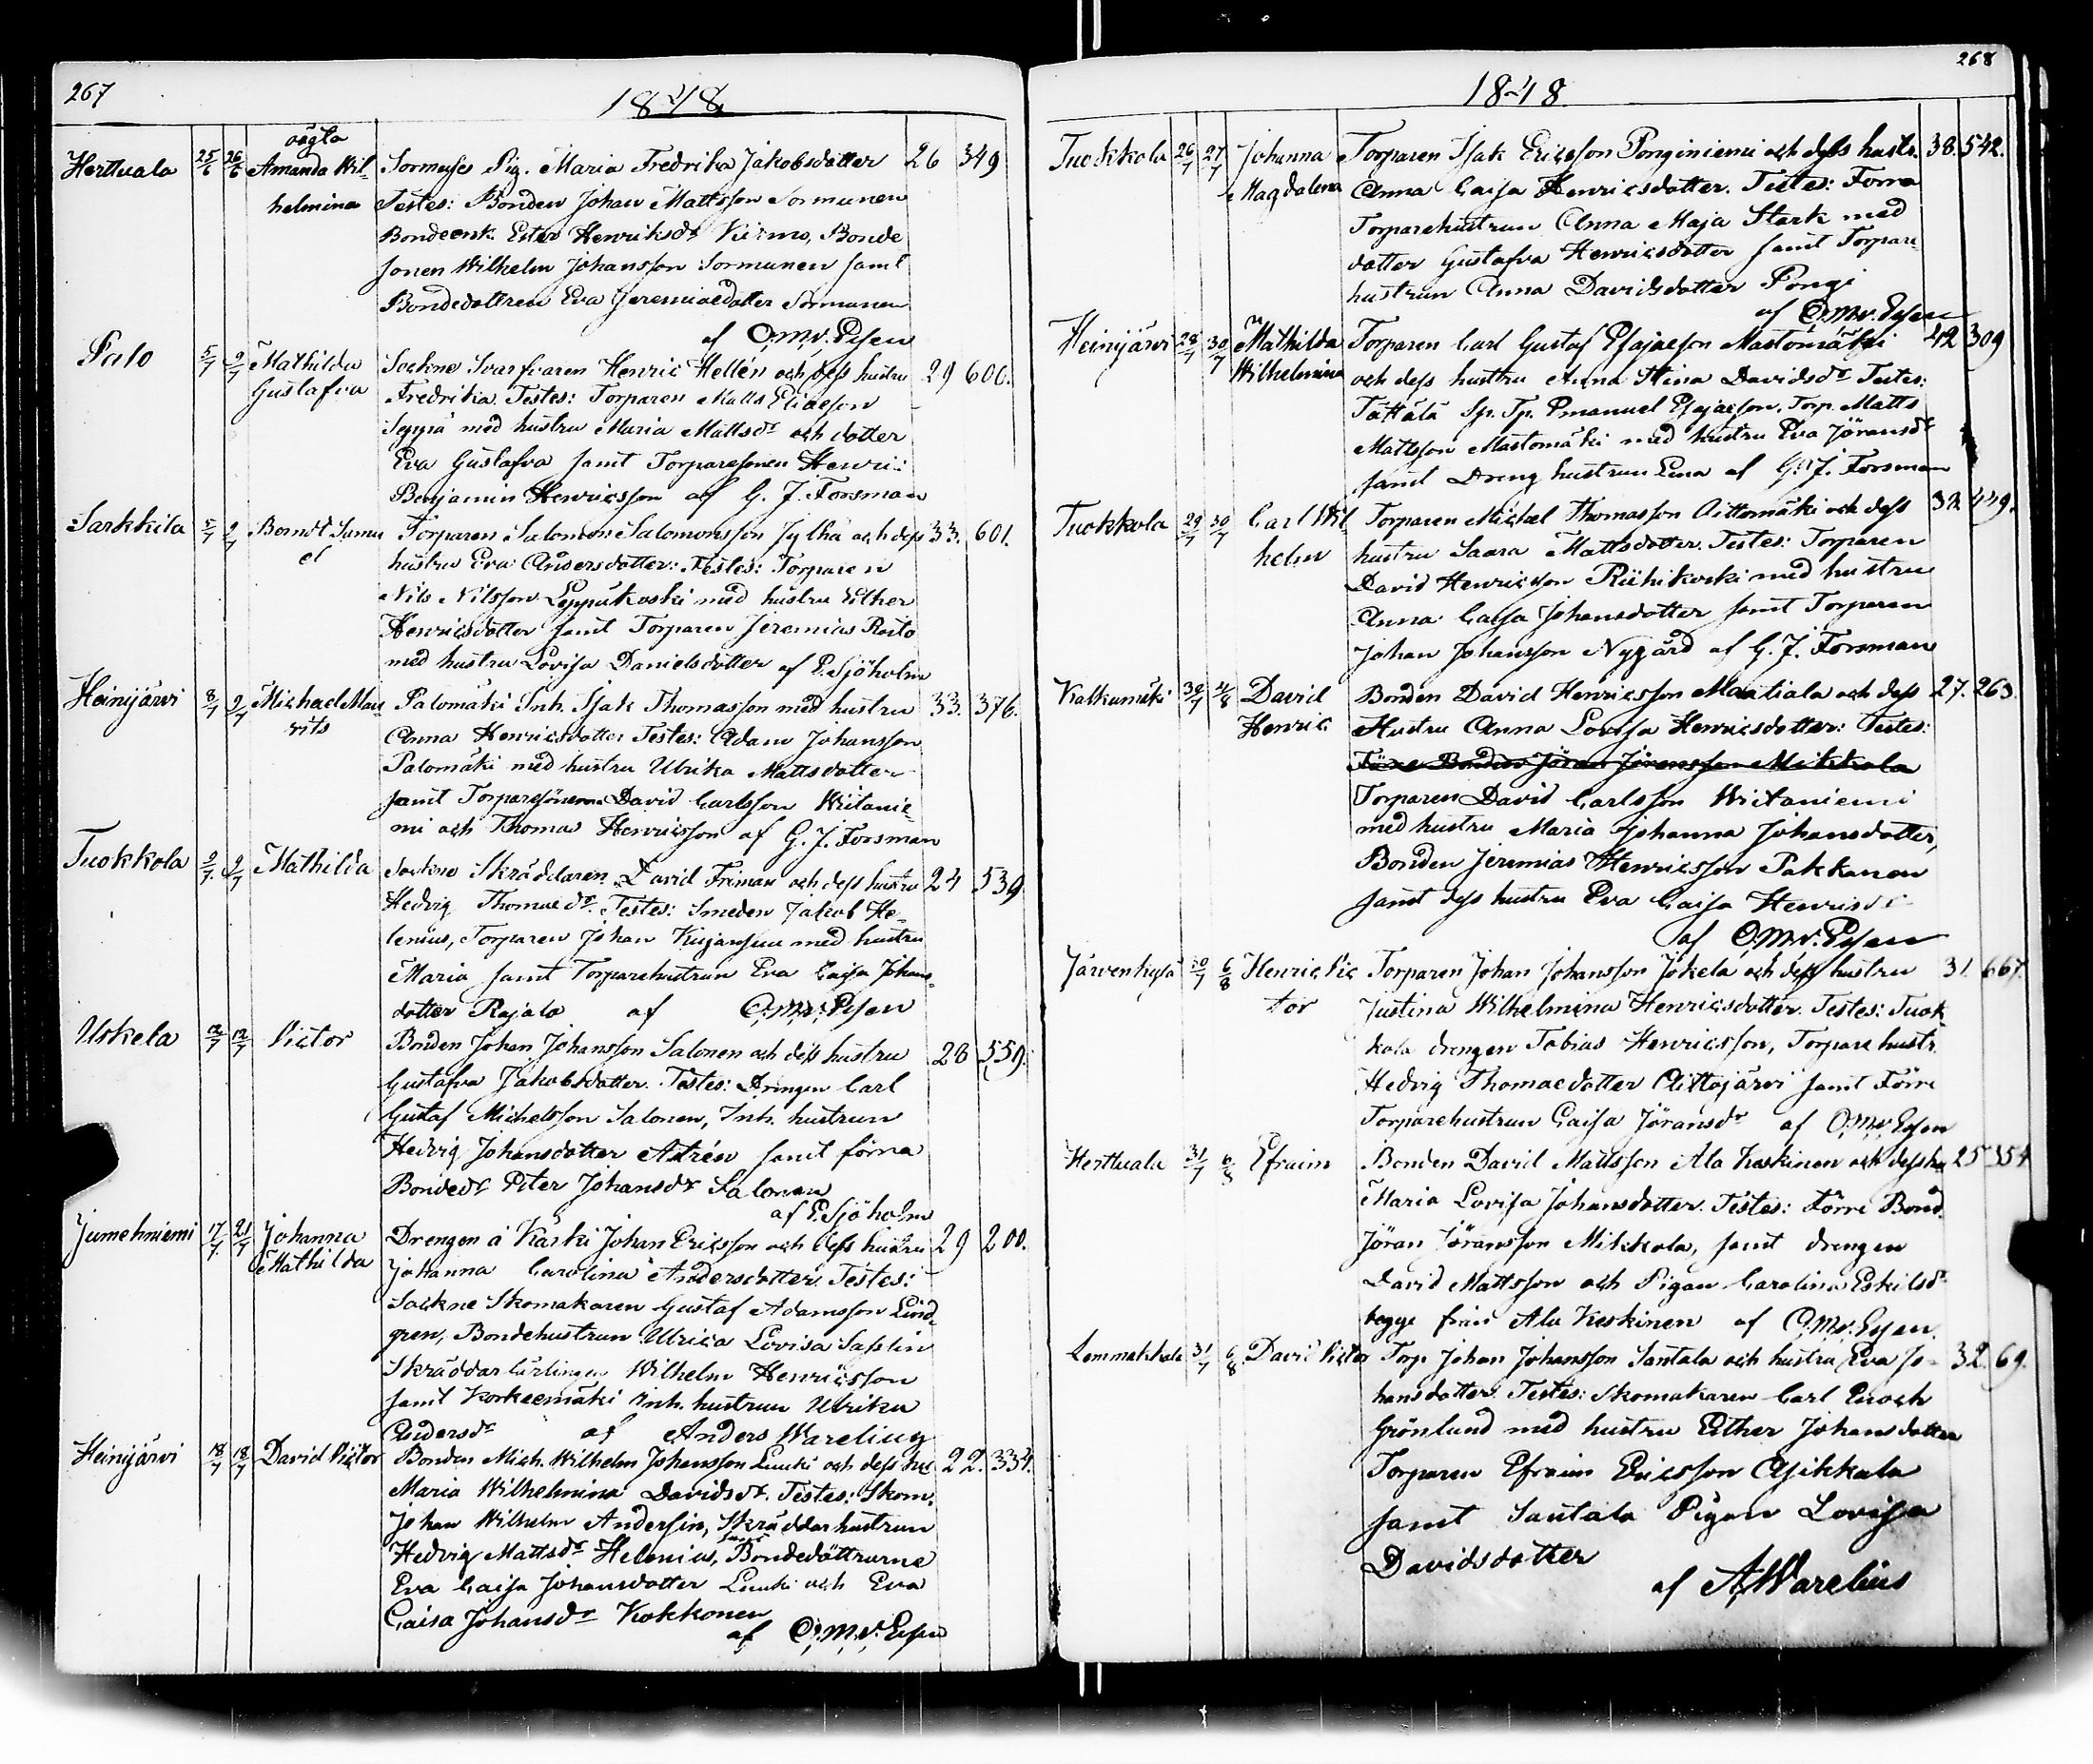 267
1848
Herttuala 25/6 26/6 oägta
Amanda Wil-
helmina
Sormuse Pig. Maria Fredrika Jakobsdotter 26 349
Testes: Bonden Johan Mattsson Sormunen
Bondeenk. Ester Henriksdr Kirmo, Bonde
sonen Wilhelm Johansson Sormunen samt
Bondedottren Eva Jeremiaedotter Sormunen
af O.M.v. Essen
Palo 5/7 9/7 Mathilda
Gustafva
Sockne Svarfvaren Henric Hellén och dess hustru 29 600.
Fredrika. Testes: Torparen Matts Eliaeson
Seppä med hustru Maria Mattsdr och dotter
Eva Gustafva samt Torparesonen Henric
Benjamin Henricsson af G. J. Forsman
Sarkkila 5/7 9/7 Berndt Samu
el
Torparen Salomon Salomonsson Jylhä och dess 33. 601.
hustru Eva Andersdotter: Testes: Torparen
Nils Nilsson Leppäkoski med hustru Esther
Henricsdotter samt Torparen Jeremias Rosto
med hustru Lovisa Danielsdotter af E. Sjöholm
Heinijärvi 8/7 9/7 Michael Mau
rits
Palomäki Inh. Isak Thomasson med hustru 33. 376.
Anna Henricsdotter Testes: Adam Johansson
Palomäki med hustru Ulrika Mattsdotter
samt Torparesönerna David Carlsson Wiitanie-
mi och Thomas Henricsson af G. J. Forsman
Tuokkola 9/7 9/7 Mathilda
Sockne Skräddaren David Friman och dess hustru 24 539
Hedvig Thomaedr. Testes: Smeden Jakob He-
lenius, Torparen Johan Kujanpuu med hustru
Maria samt Torparehustrun Eva Caisa Johans-
dotter Rajala af O.M.v. Essen
Uskela 12/7 12/7 Victor
Bonden Johan Johansson Salonen och dess hustru 28 559.
Gustafva Jakobsdotter. Testes: Drengen Carl
Gustaf Michelsson Salonen, Inh. hustrun
Hedvig Johansdotter Astrén samt förra
Bondedr Ester Johansdr Salonen
af E. Sjöholm
Jumehniemi 17/7 21/7 Johanna
Mathilda
Drengen å Käski Johan Ericsson och dess hustru 29 200.
Johanna Carolina Andersdotter. Testes:
Sockne Skomakaren Gustaf Adamsson Lind-
gren, Bondehustrun Ulrica Lovisa Saxlin
Skräddar Lärlingen Wilhelm Henricsson
samt Korkeemäki Inh. hustrun Ulrika
Andersdr af Anders Warelius
Heinijärvi 18/7 18/7 David Victor
Bonden Mich. Wilhelm Johansson Luuki och dess hu 22. 334.
Maria Wilhelmina Davidsdr. Testes: Skom.
Johan Wilhelm Andersin, Skräddar hustrun
Hedvig Mattsdr Helenius, samt Bondedöttrarne
Eva Caisa Johansdotter Luuki och Eva
Caisa Johansdr Kokkonen
af O.M.v. Essen
268
1848
Tuokkola 26/7 27/7 Johanna
Magdalena
Torparen Isak Ericsson Ponginiemi och dess hustr. 38. 542.
Anna Caisa Henricsdotter. Testes: Förra
Torparehustrun Anna Maja Stark med
dotter Gustafva Henricsdotter samt Torpare-
hustrun Anna Davidsdotter Pongi
af O.M.v. Essen
Heinijärvi 28/7 30/7 Mathilda
Wilhelmina
Torparen Carl Gustaf Esajaeson Mastomäki 42 309
och dess hustru Anna Stina Davidsdr Testes:
Tättälä Sp. Tp. Emanuel Esajaeson, Torp. Matts
Mattsson Mastomäki med hustru Eva Jöransdr
samt Dreng hustrun Lena af G. J. Forsman
Tuokkola 29/7 30/7 Carl Wil
helm
Torparen Michel Thomasson Aittomäki och dess 32 449.
hustru Saara Mattsdotter. Testes: Torparen
David Henricsson Riihikoski med hustru
Anna Caisa Johansdotter samt Torparen
Johan Johansson Nygård af G. J. Forsman
Kalkunmäki 30/7 4/8 David
Henric
Bonden David Henricsson Maatiala och dess 27. 263.
Hustru Anna Lovisa Henricsdotter: Testes:
Förre Bonden Jöran Jöransson Mikkola
Torparen David Carlsson Wiitaniemi
med hustru Maria Johanna Johansdotter,
Bonden Jeremias Henricsson Pakkanen
samt dess hustru Eva Caisa Henricsdr
af O.M.v. Essen
Järwenkylä 30/7 6/8 Henric Vic
tor
Torparen Johan Johansson Jokela och dess hustru 31. 667.
Justina Wilhelmina Henricsdotter. Testes: Tuok
kola drengen Tobias Henricsson, Torpare hustr.
Hedvig Thomaedotter Aittojärvi samt Förre
Torparehustrun Caisa Jöransdr af O.M.v. Essen
Herttuala 31/7 6/8 Efraim
Bonden David Mattsson Ala Keskinen och dess hu 25 354
Maria Lovisa Johansdotter. Testes: Förre Bond.
Jöran Jöransson Mikkola, samt drengen
David Mattsson och Pigan Carolina Eskilsdr
begge från Ala Keskinen af O.M.v. Essen.
Lemmakkala 31/7 6/8 David Victor
Torp. Johan Johansson Santala och hustru Eva Jo- 32. 69.
hansdotter. Testes: Skomakaren Carl Enoch
Grönlund med hustru Esther Johansdotter
Torparen Efraim Ericsson Asikkala
samt Santala Pigan Lovisa
Davidsdotter
af A. Warelius